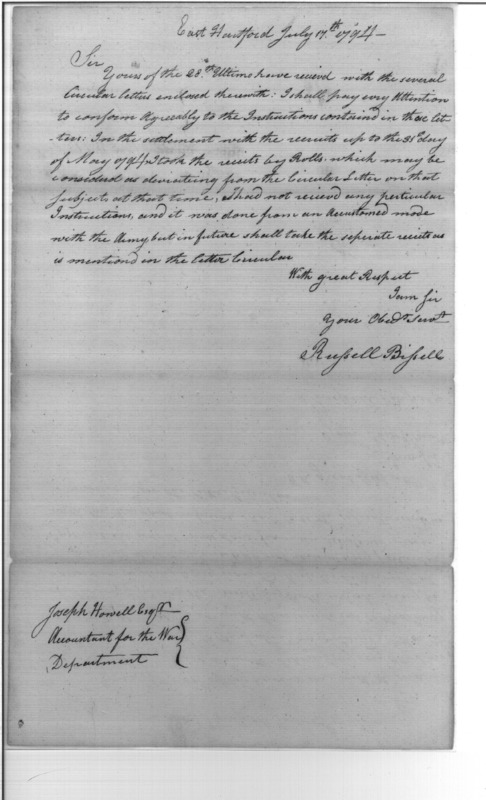 East Hartford July 17.th 1794 -
Sir
Yours of the 28.th Ultimo have recievd with the several
Circular letters enclosed therewith: I shall pay evry Attention
to conform Agreeably to the Instructions containd in those let-
-ters. In the settlement with the recruits up to the 31st day
of May 1794 I took the reciets by Rolls, which may be
considered as deviating from the Circular Letter on that
subject, at that time, I had not recievd any perticular
Instructions, and it was done from an Accustomed mode
with the Army but in future shall take the seperate reciets as
is mentiond in the letter Circular
With great Respect
I am Sir
Your Obedt. Servt.
Russell Bissell
Joseph Howell Esqr.
Accountant for the War
Department